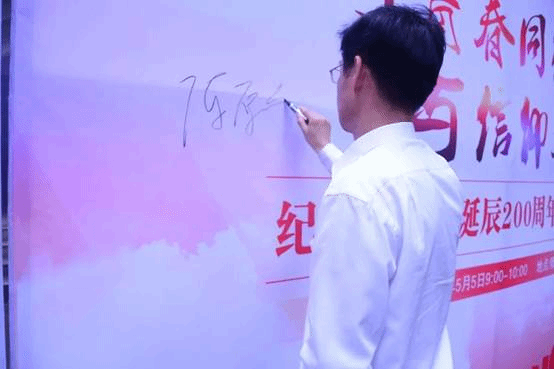 春同
陈原
与信仰
纪 诞辰200周年
-5月5日9:00-10:00 地点